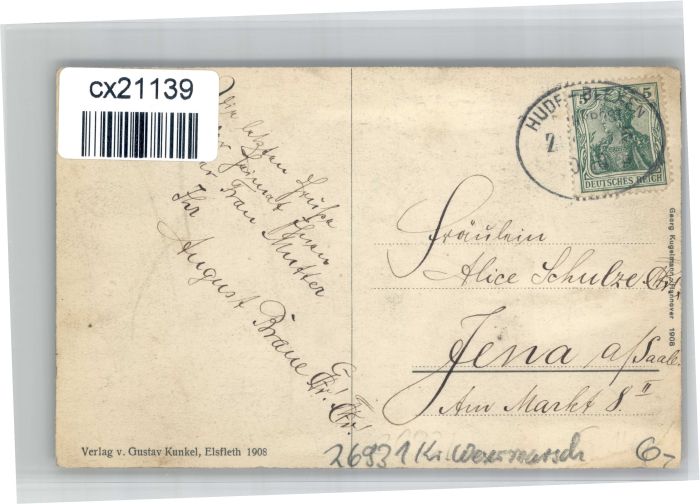 cx21139
Die letzten Grüße
der Heimat Ihnen
Frau Mutter
Ihr
August Braue
HUDE - BLEXEN
5 5
2
DEUTSCHES REICH
Fräulein
Alice Schulze
Jena a/Saale
Am Markt 8 II
Georg Kugelmann, Hannover 1908
Verlag v. Gustav Kunkel, Elsfleth 1908
26931 Kr. Wesermarsch
6,-